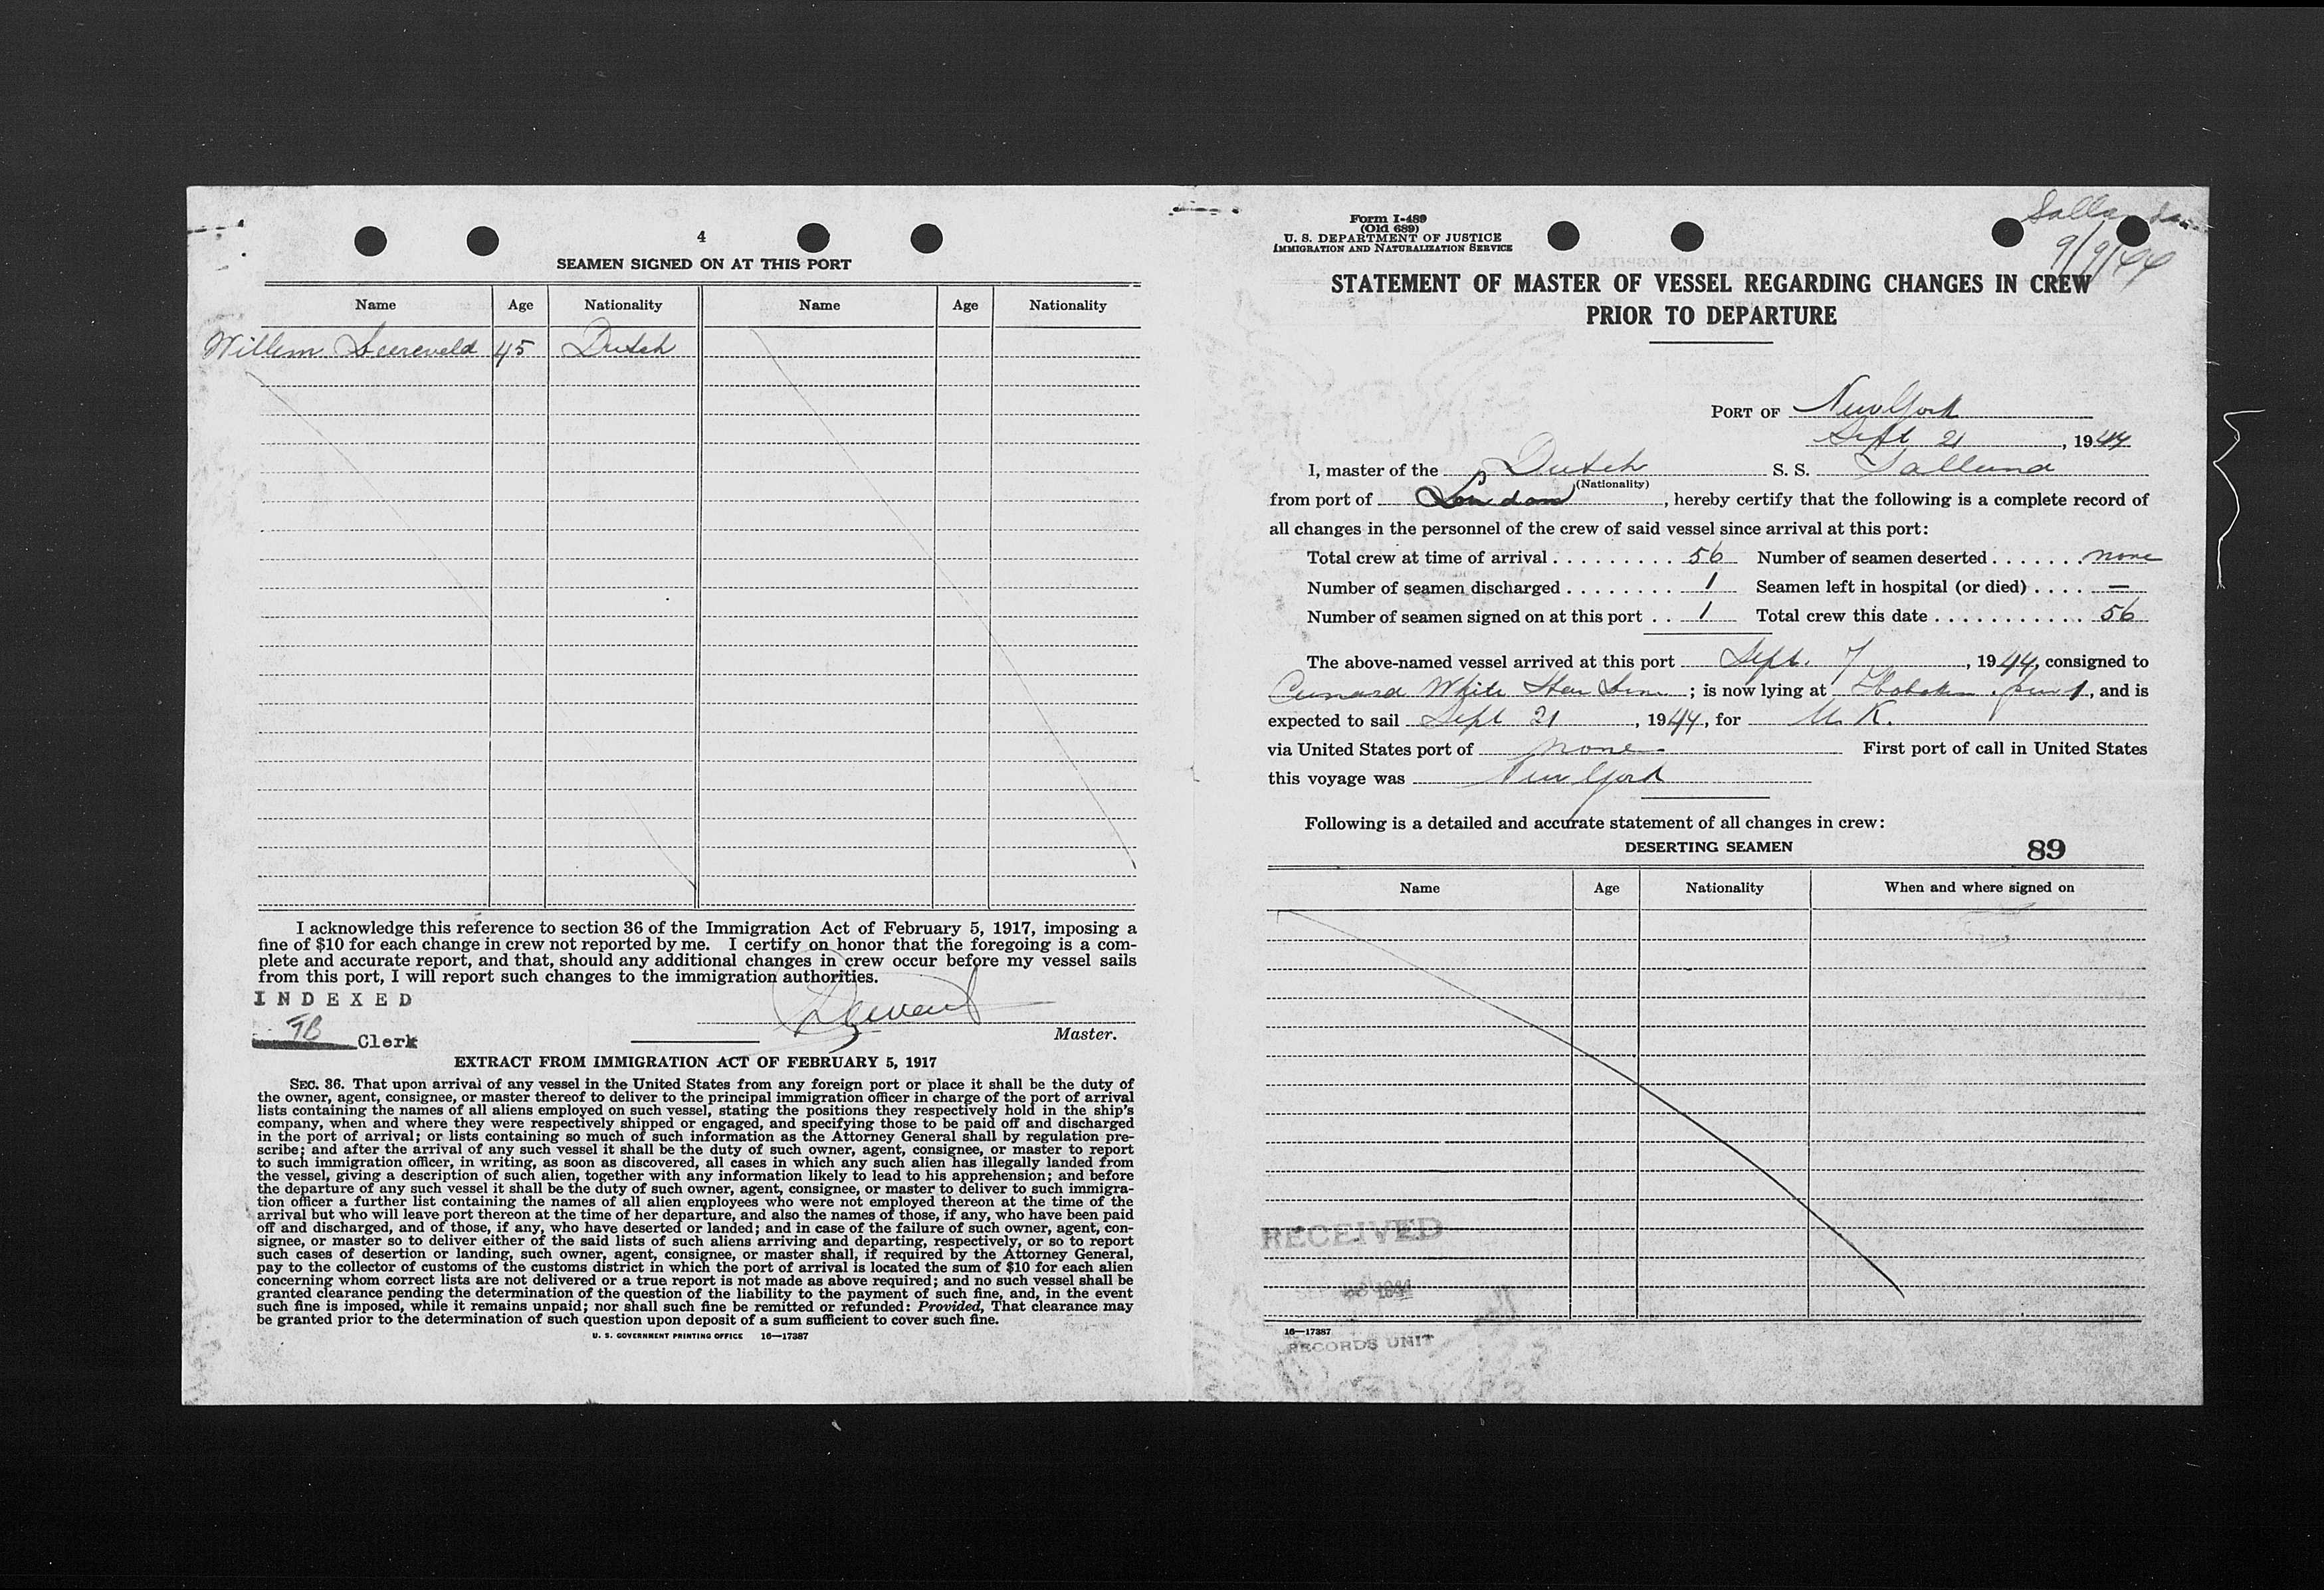 4
SEAMEN SIGNED ON AT THIS PORT
Name Age Nationality Name Age Nationality
Willem 45 Dutch
I acknowledge this reference to section 36 of the Immigration Act of February 5, 1917, imposing a
fine of $10 for each change in crew not reported by me. I certify on honor that the foregoing is a com-
plete and accurate report, and that, should any additional changes in crew occur before my vessel sails
from this port, I will report such changes to the immigration authorities.
INDEXED
TB Clerk
Master.
EXTRACT FROM IMMIGRATION ACT OF FEBRUARY 5, 1917
SEC. 36. That upon arrival of any vessel in the United States from any foreign port or place it shall be the duty of
the owner, agent, consignee, or master thereof to deliver to the principal immigration officer in charge of the port of arrival
lists containing the names of all aliens employed on such vessel, stating the positions they respectively hold in the ship's
company, when and where they were respectively shipped or engaged, and specifying those to be paid off and discharged
in the port of arrival; or lists containing so much of such information as the Attorney General shall by regulation pre-
scribe; and after the arrival of any such vessel it shall be the duty of such owner, agent, consignee, or master to report
to such immigration officer, in writing, as soon as discovered, all cases in which any such alien has illegally landed from
the vessel, giving a description of such alien, together with any information likely to lead to his apprehension; and before
the departure of any such vessel it shall be the duty of such owner, agent, consignee, or master to deliver to such immigra-
tion officer a further list containing the names of all alien employees who were not employed thereon at the time of the
arrival but who will leave port thereon at the time of her departure, and also the names of those, if any, who have been paid
off and discharged, and of those, if any, who have deserted or landed; and in case of the failure of such owner, agent, con-
signee, or master so to deliver either of the said lists of such aliens arriving and departing, respectively, or so to report
such cases of desertion or landing, such owner, agent, consignee, or master shall, if required by the Attorney General,
pay to the collector of customs of the customs district in which the port of arrival is located the sum of $10 for each alien
concerning whom correct lists are not delivered or a true report is not made as above required; and no such vessel shall be
granted clearance pending the determination of the question of the liability to the payment of such fine, and, in the event
such fine is imposed, while it remains unpaid; nor shall such fine be remitted or refunded: Provided, That clearance may
be granted prior to the determination of such question upon deposit of a sum sufficient to cover such fine.
U. S. GOVERNMENT PRINTING OFFICE 16—17387
Form I-489
(Old 689)
U. S. DEPARTMENT OF JUSTICE
IMMIGRATION AND NATURALIZATION SERVICE
9/9/44
STATEMENT OF MASTER OF VESSEL REGARDING CHANGES IN CREW
PRIOR TO DEPARTURE
PORT OF New York
Sept 21, 1944
I, master of the Dutch S. S. Salland
(Nationality)
from port of London, hereby certify that the following is a complete record of
all changes in the personnel of the crew of said vessel since arrival at this port:
Total crew at time of arrival . . . . . . . . . 56 Number of seamen deserted . . . . . . . none
Number of seamen discharged . . . . . . . . 1 Seamen left in hospital (or died) . . . . —
Number of seamen signed on at this port . . 1 Total crew this date . . . . . . . . . . . 56
The above-named vessel arrived at this port Sept. 7, 1944, consigned to
Cunard White Star Line; is now lying at Hoboken pier 1, and is
expected to sail Sept 21, 1944, for U. K.
via United States port of none First port of call in United States
this voyage was New York
Following is a detailed and accurate statement of all changes in crew:
DESERTING SEAMEN 89
Name Age Nationality When and where signed on
RECEIVED
1944
16—17387
RECORDS UNIT